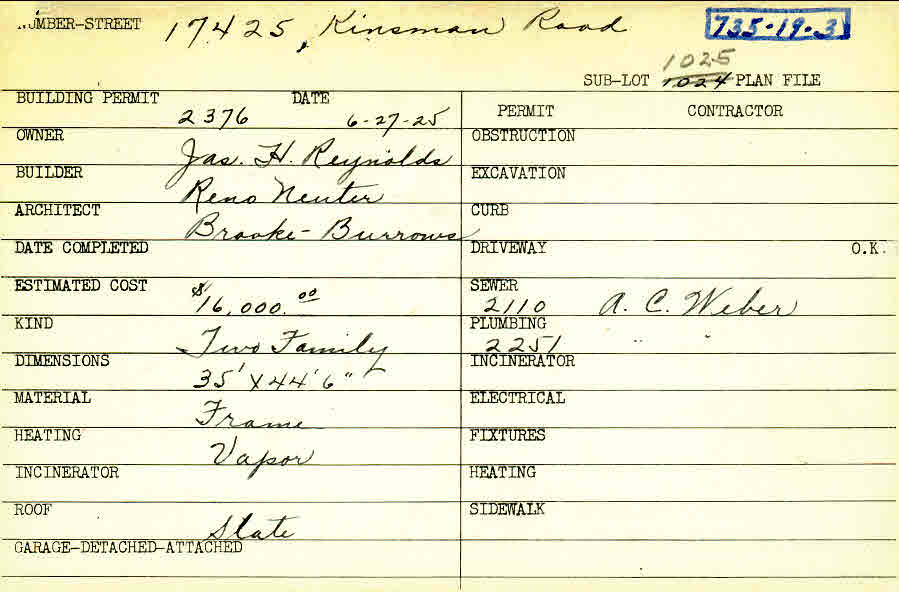 NUMBER-STREET 17425, Kinsman Road 735-19-3
1025
SUB-LOT 1024 PLAN FILE
BUILDING PERMIT DATE
2376 6-27-25
PERMIT CONTRACTOR
OWNER
Jas. H. Reynolds
OBSTRUCTION
BUILDER
Reno Neuter
EXCAVATION
ARCHITECT
Brooke-Burrows
CURB
DATE COMPLETED
DRIVEWAY O.K.
ESTIMATED COST
$16,000.00
SEWER
2110 A. C. Weber
KIND
Two Family
PLUMBING
2251 " "
DIMENSIONS
35' X 44' 6"
INCINERATOR
MATERIAL
Frame
ELECTRICAL
HEATING
Vapor
FIXTURES
INCINERATOR
HEATING
ROOF
Slate
SIDEWALK
GARAGE-DETACHED-ATTACHED